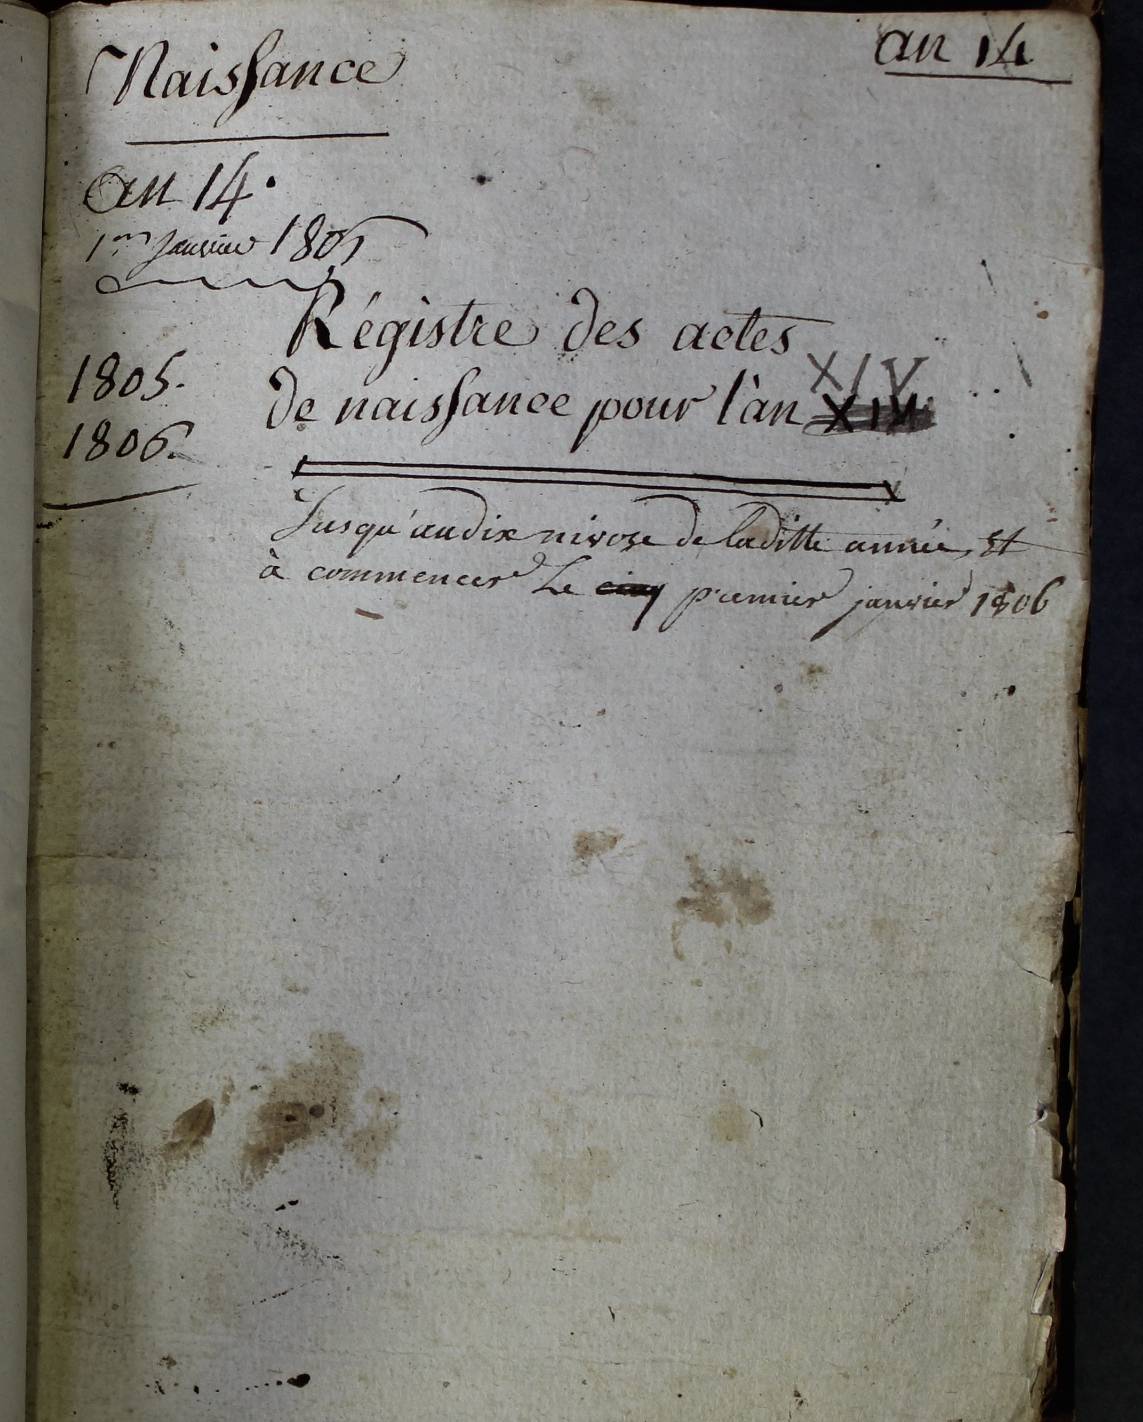 Naissance
an 14
an 14.
1er Janvier 1805
Régistre des actes
1805.
XIV
de naissance pour l'àn XIII
1806.
Jusqu'au dix nivose de laditte année, et
à commencer Le cinq premier janvier 1806